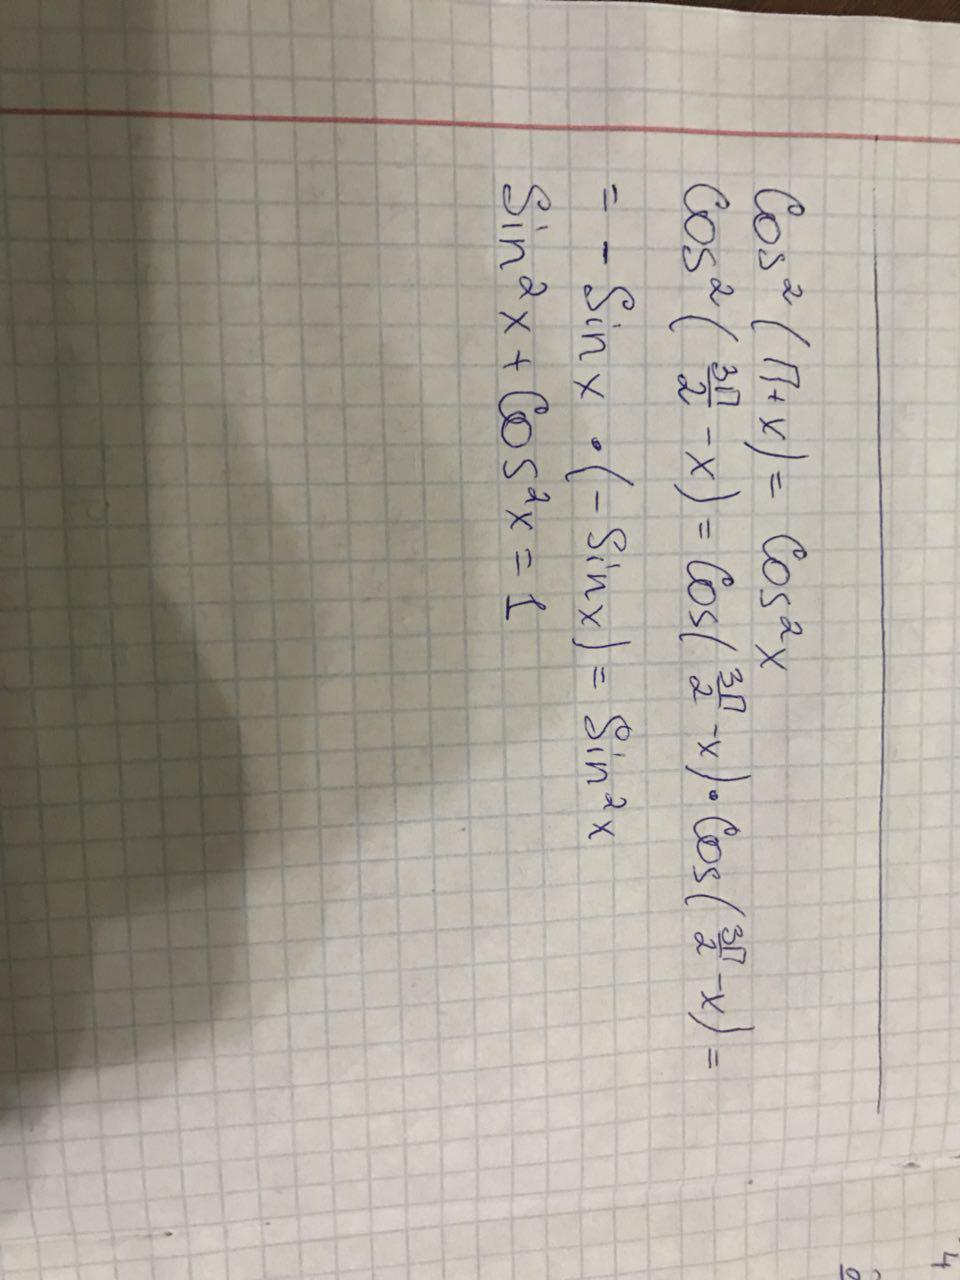 Cos²(π+x) = Cos²x
Cos²(3π/2 -x) = Cos(3π/2 -x)·Cos(3π/2 -x) =
= - Sinx · (- Sinx) = Sin²x
Sin²x + Cos²x = 1
4